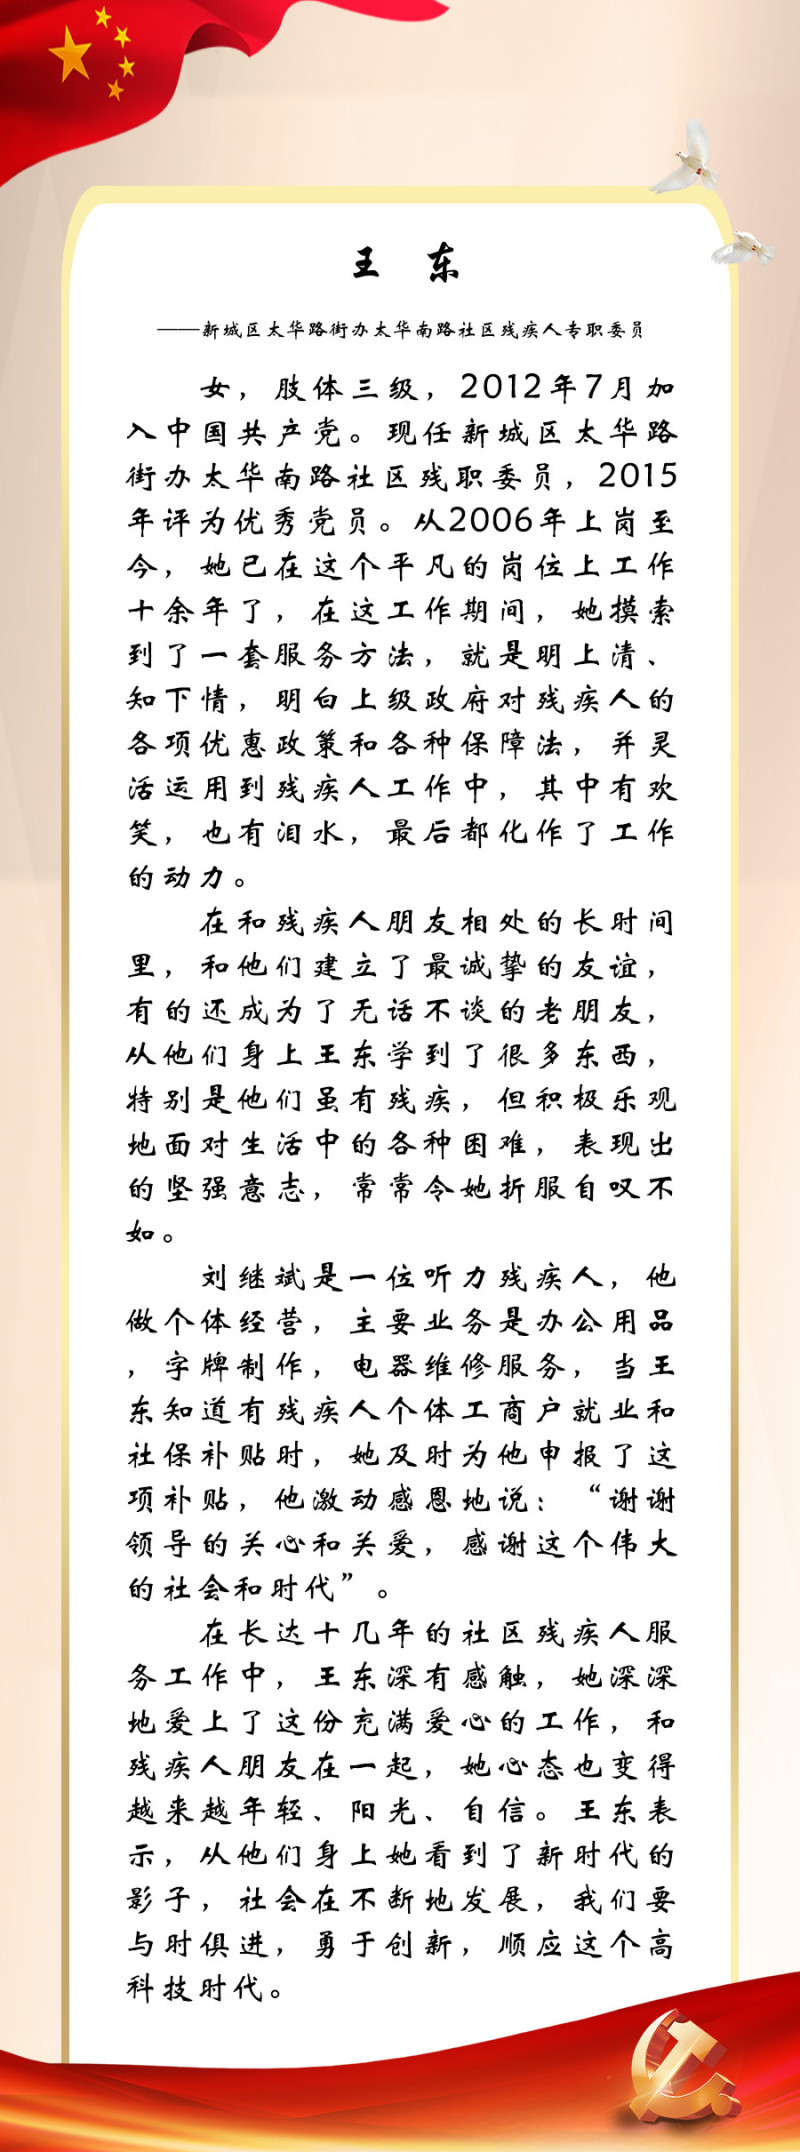 王 东
——新城区太华路街办太华南路社区残疾人专职委员
女，肢体三级，2012年7月加
入中国共产党。现任新城区太华路
街办太华南路社区残职委员，2015
年评为优秀党员。从2006年上岗至
今，她已在这个平凡的岗位上工作
十余年了，在这工作期间，她摸索
到了一套服务方法，就是明上清、
知下情，明白上级政府对残疾人的
各项优惠政策和各种保障法，并灵
活运用到残疾人工作中，其中有欢
笑，也有泪水，最后都化作了工作
的动力。
在和残疾人朋友相处的长时间
里，和他们建立了最诚挚的友谊，
有的还成为了无话不谈的老朋友，
从他们身上王东学到了很多东西，
特别是他们虽有残疾，但积极乐观
地面对生活中的各种困难，表现出
的坚强意志，常常令她折服自叹不
如。
刘继斌是一位听力残疾人，他
做个体经营，主要业务是办公用品
，字牌制作，电器维修服务，当王
东知道有残疾人个体工商户就业和
社保补贴时，她及时为他申报了这
项补贴，他激动感恩地说：“谢谢
领导的关心和关爱，感谢这个伟大
的社会和时代”。
在长达十几年的社区残疾人服
务工作中，王东深有感触，她深深
地爱上了这份充满爱心的工作，和
残疾人朋友在一起，她心态也变得
越来越年轻、阳光、自信。王东表
示，从他们身上她看到了新时代的
影子，社会在不断地发展，我们要
与时俱进，勇于创新，顺应这个高
科技时代。